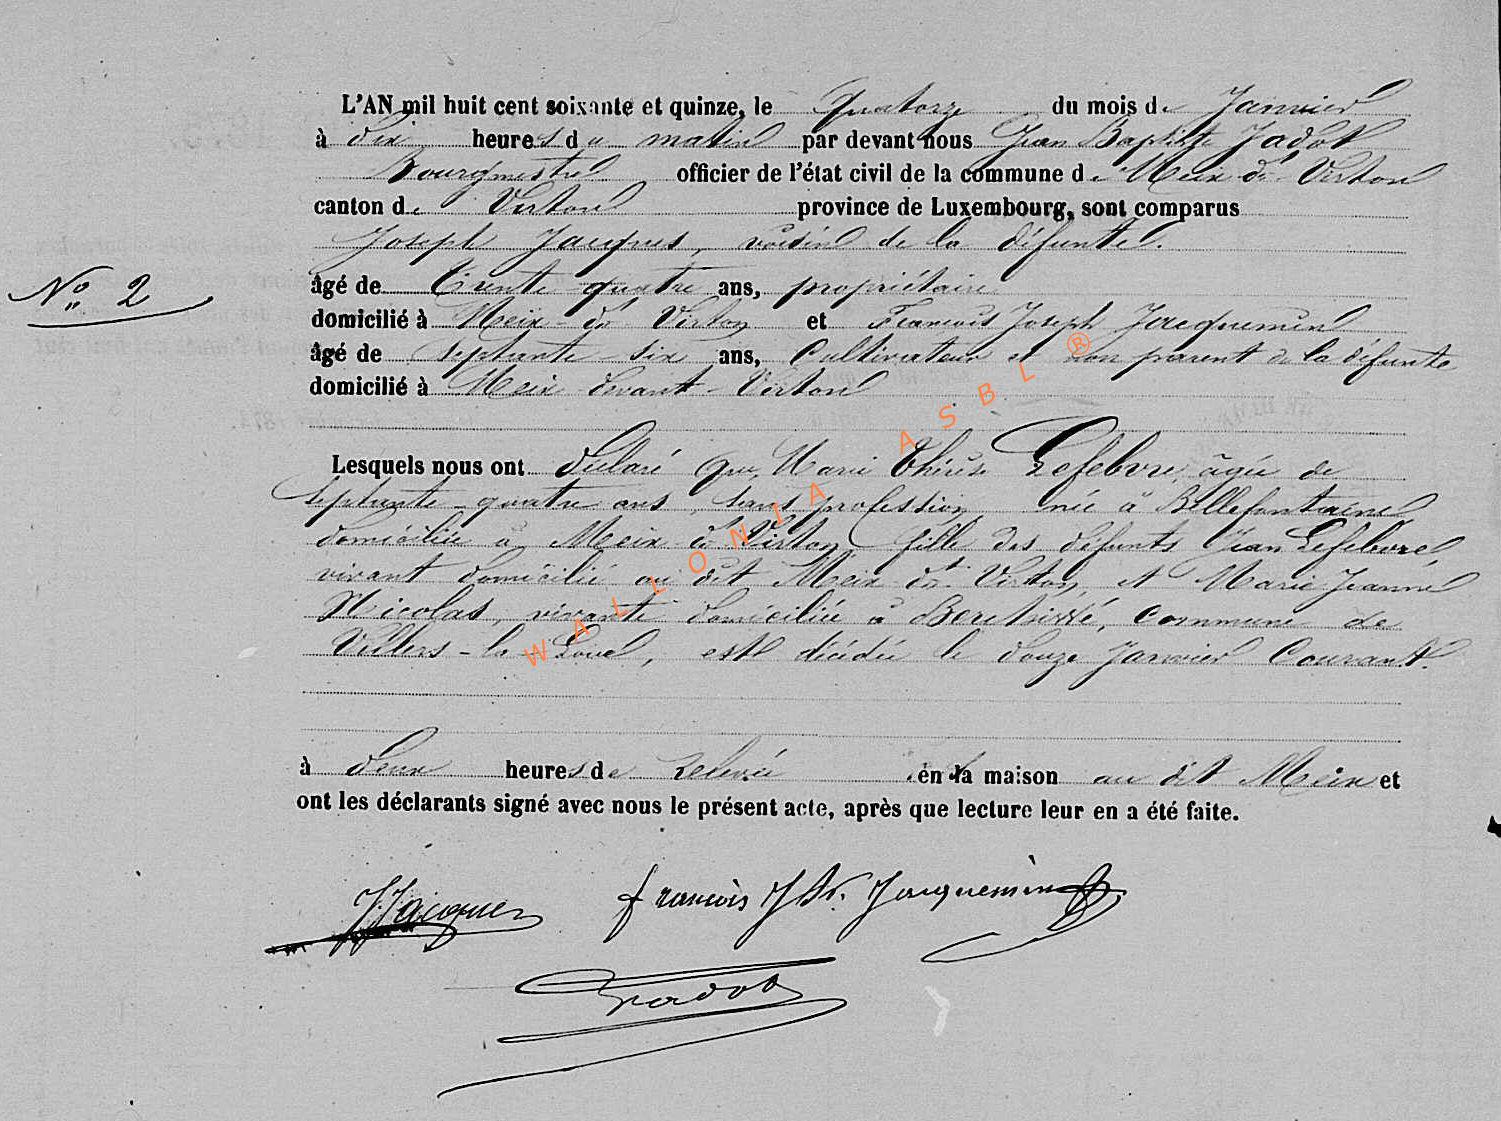 L'AN mil huit cent soixante et quinze, le Quatorze du mois de Janvier
à dix heures du matin par devant nous Jean Baptiste Jadot
Bourgmestre officier de l'état civil de la commune de Meix dt Virton
canton de Virton province de Luxembourg, sont comparus
Joseph Jacques, voisin de la défunte.
N° 2
âgé de Trente quatre ans, propriétaire
domicilié à Meix-dt Virton et François Joseph Jacquemin
âgé de septante six ans, Cultivateur et non parent de la défunte
domicilié à Meix-devant-Virton
Lesquels nous ont déclaré que, Marie Thérèse Lefebvre, âgée de
septante-quatre ans, sans profession née à Bellefontaine
domiciliée à Meix dt Virton fille des défunts Jean Lefebvre
vivant domicilié au dit Meix dt Virton, et Marie Jeanne
Nicolas, vivante domiciliée à Berchiwé, commune de
Villers-la-Loue, est décédée le douze Janvier Courant.
à deux heures de relevée en sa maison au dit Meix et
ont les déclarants signé avec nous le présent acte, après que lecture leur en a été faite.
J. Jacques François Jh. Jacquemin
Jadot
WALLONIA ASBL ®